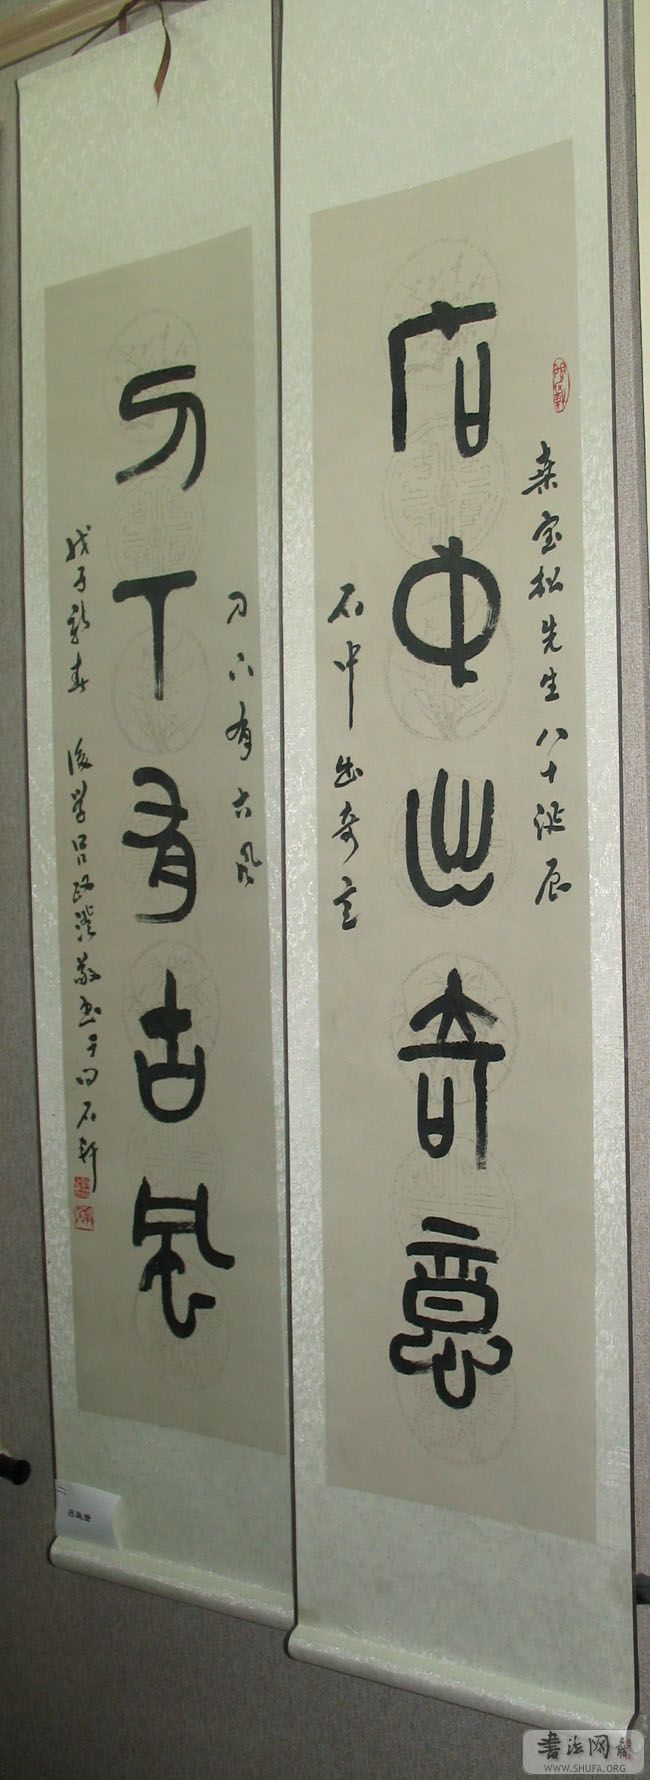 石中出奇意
桑宝松先生八十诞辰
石中出奇意
刀下有古风
刀下有古风
戊子新春 后学吕
敬书于问石轩
書法网
WWW.SHUFA.ORG